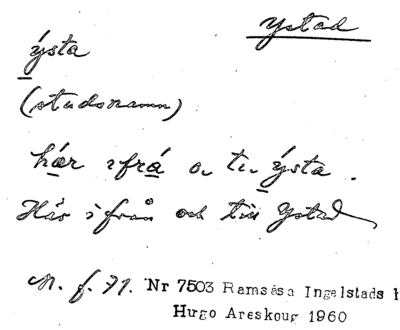 Ystad
ýsta
(stadsnamn)
hær ifrå o te ýsta.
Här ifrån och till Ystad
M. f. 71. Nr 7503 Ramsåsa Ingelstads h
Hugo Areskoug 1960